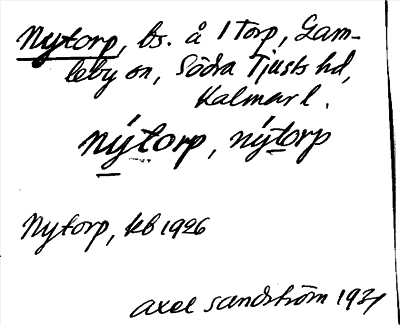 Nytorp, bs. å 1 Torp, Gam-
leby sn, Södra Tjusts hd,
Kalmar l.
nýtorp, nýtorp
Nytorp, kb 1926
Axel Sandström 1931